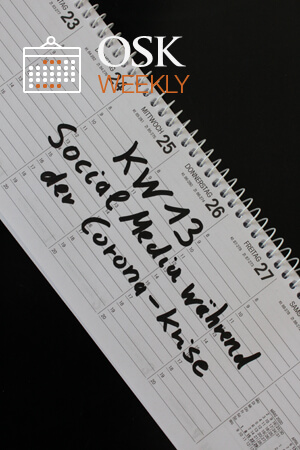 OSK
WEEKLY
23
24
MITTWOCH 25
DONNERSTAG 26
FREITAG 27
KW 13
Social Media während
der Corona-Krise